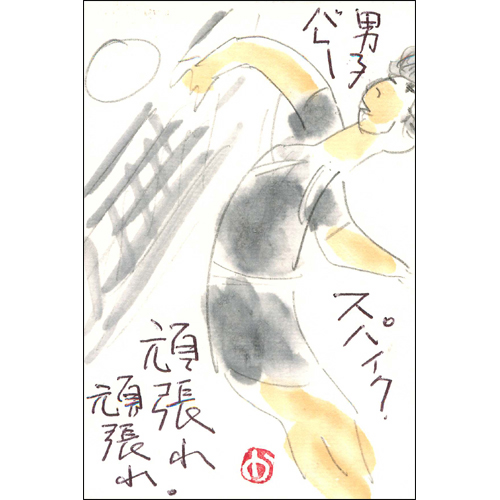 男子
バレー
スパイク
頑張れ
頑張れ.
め